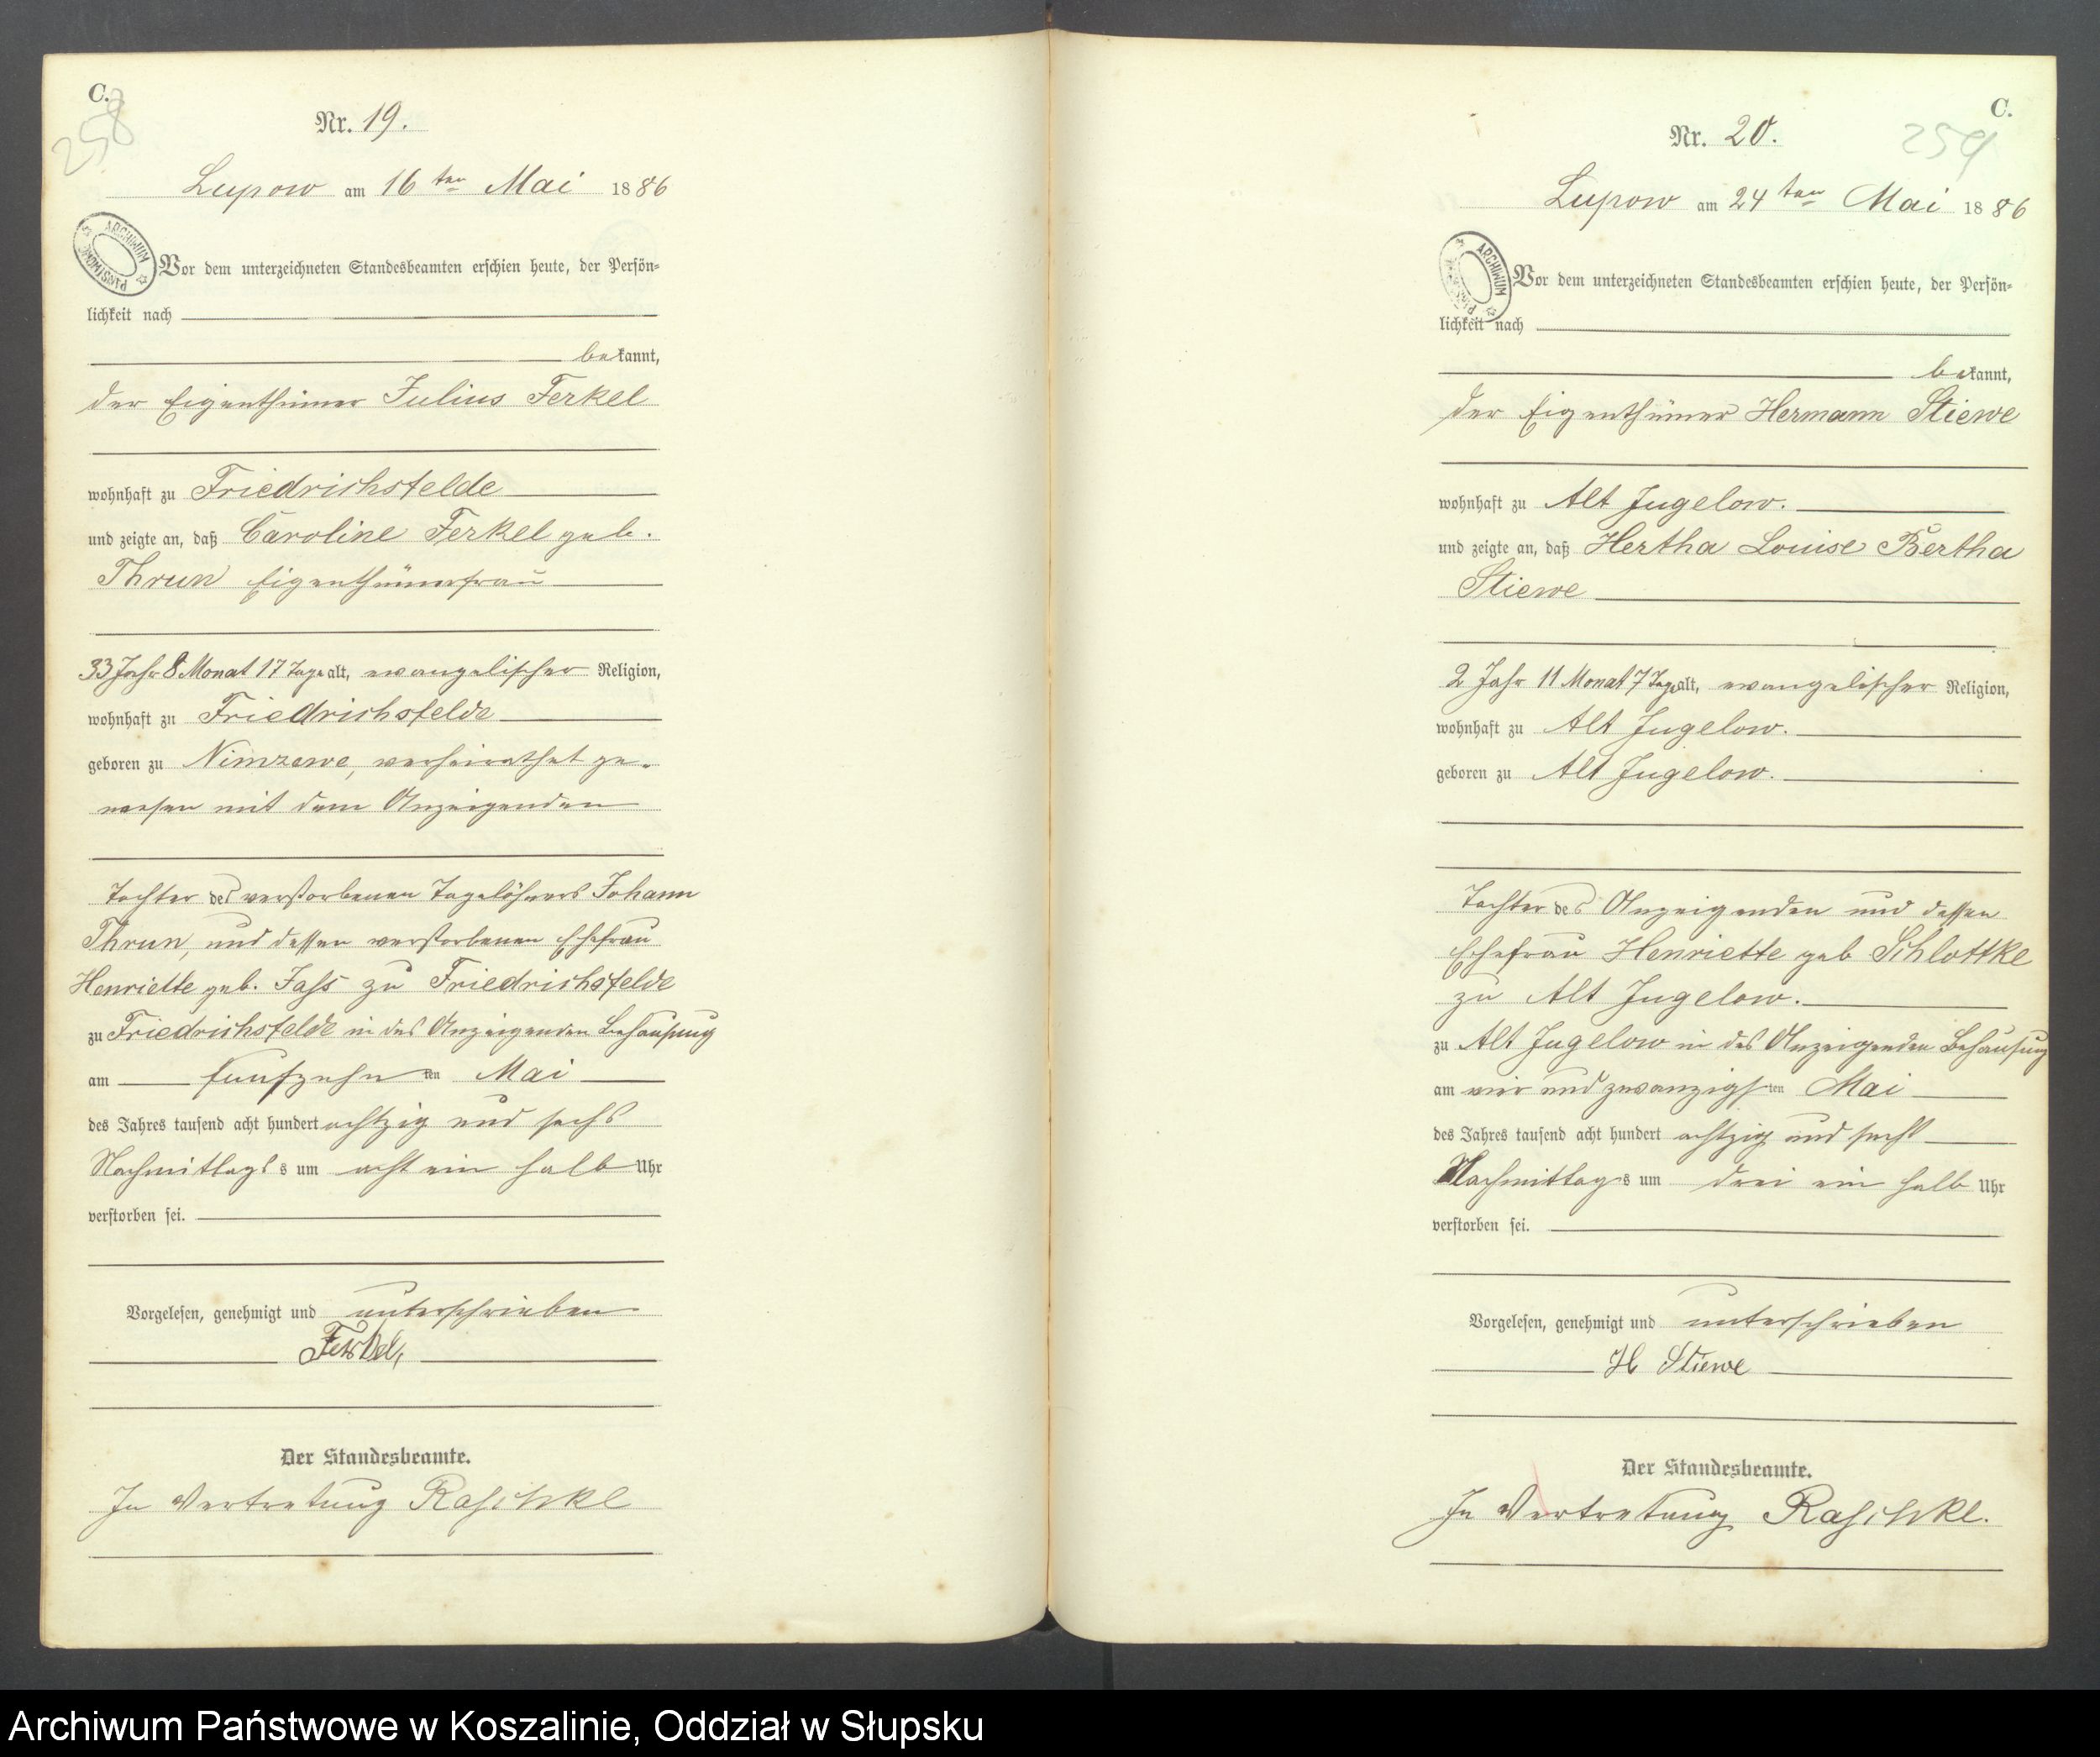 C.
258
Nr. 19.
Lupow am 16ten Mai 1886
ARCHIWUM PAŃSTWOWE
Vor dem unterzeichneten Standesbeamten erschien heute, der Persön-
lichkeit nach
bekannt,
der Eigenthümer Julius Ferkel
wohnhaft zu Friedrichsfelde
und zeigte an, daß Caroline Ferkel geb.
Thrun Eigenthümerfrau
33 Jahr 8 Monat 17 Tage alt, evangelischer Religion,
wohnhaft zu Friedrichsfelde
geboren zu Nimzewe, verheirathet ge-
wesen mit dem Anzeigenden
Tochter des verstorbenen Tagelöhners Johann
Thrun, und dessen verstorbenen Ehefrau
Henriette geb. Jass zu Friedrichsfelde
zu Friedrichsfelde in des Anzeigenden Behausung
am funfzehnten Mai
des Jahres tausend acht hundert achtzig und sechs
Nachmittags um acht ein halb Uhr
verstorben sei.
Vorgelesen, genehmigt und unterschrieben
Ferkel,
Der Standesbeamte.
In Vertretung Raschke
C.
259
Nr. 20.
Lupow am 24ten Mai 1886
ARCHIWUM
Vor dem unterzeichneten Standesbeamten erschien heute, der Persön-
lichkeit nach
bekannt,
der Eigenthümer Hermann Stiewe
wohnhaft zu Alt Jugelow.
und zeigte an, daß Hertha Louise Bertha
Stiewe
2 Jahr 11 Monat 7 Tage alt, evangelischer Religion,
wohnhaft zu Alt Jugelow.
geboren zu Alt Jugelow.
Tochter des Anzeigenden und dessen
Ehefrau Henriette geb Schlottke
zu Alt Jugelow.
zu Alt Jugelow in des Anzeigenden Behausung
am vier und zwanzigsten Mai
des Jahres tausend acht hundert achtzig und sechs
Nachmittags um drei ein halb Uhr
verstorben sei.
Vorgelesen, genehmigt und unterschrieben
H Stiewe
Der Standesbeamte.
In Vertretung Raschke.
Archiwum Państwowe w Koszalinie, Oddział w Słupsku